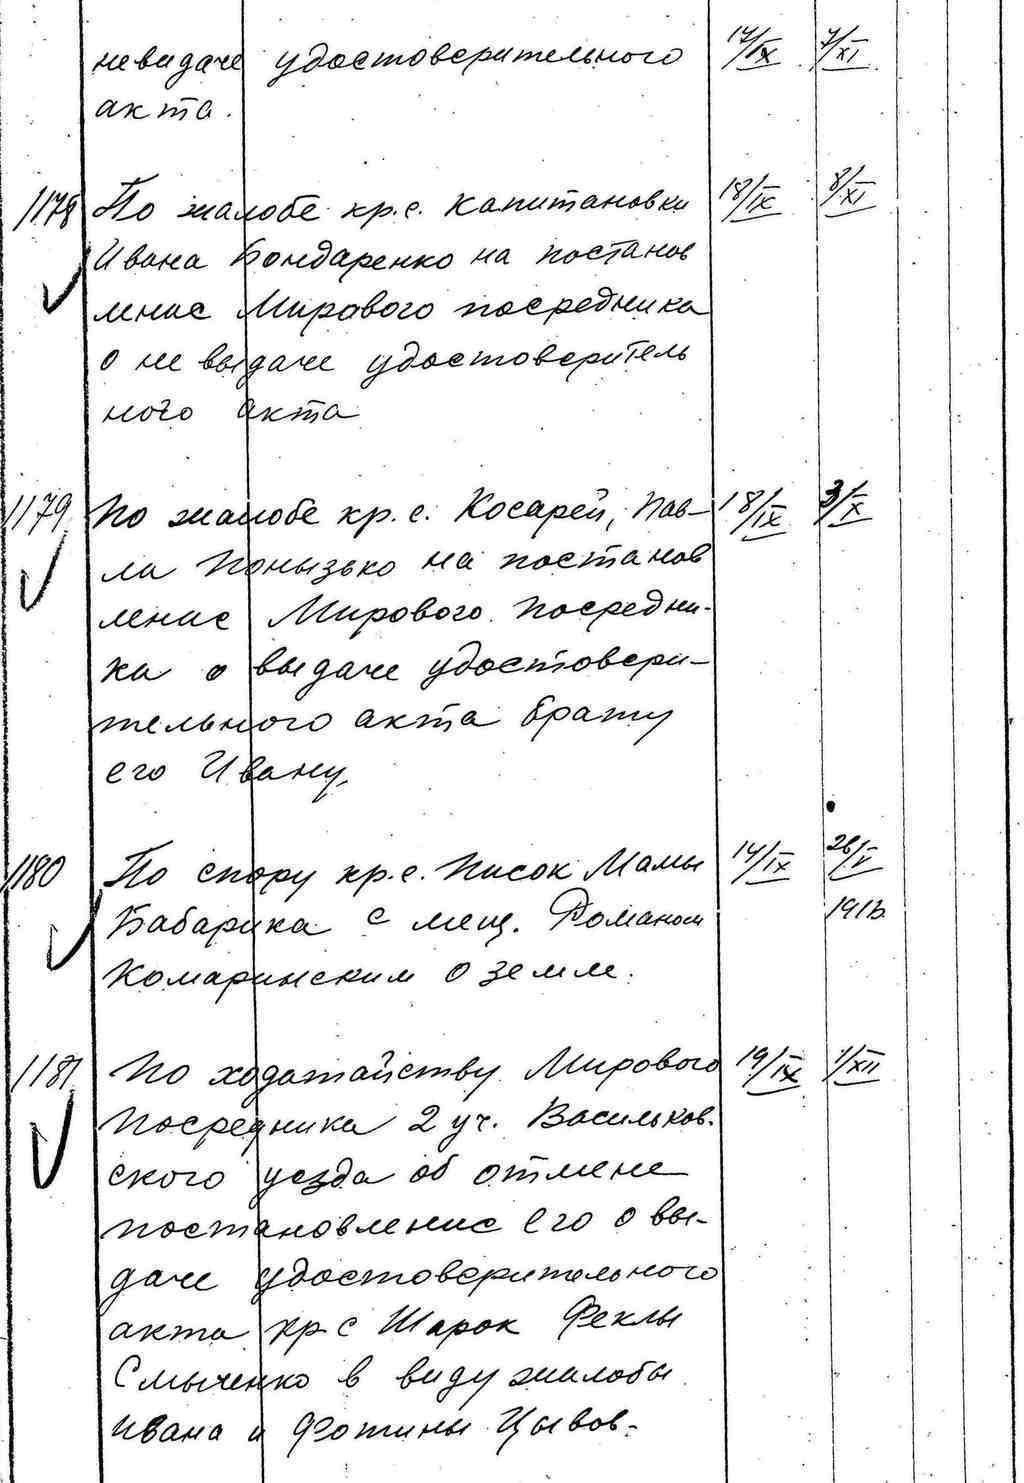 невидаче удостоверительного 17/IX 7/XI
акта.
1178 По жалобе кр. с. Капитановки 18/IX 8/XI
Ивана Бондаренко на постанов
ление Мирового посредника
о не выдаче удостоверитель
ного акта
1179 По жалобе кр. с. Косарей, Пав- 18/IX 3/X
ла Понызько на постанов
ление Мирового Посредни-
ка о выдаче удостовери-
тельного акта брату
его Ивану.
1180 По спору кр. с. Писок Мамы 14/IX 26/V
Бабарика с мещ. Романом 1916
Комаринским о земле.
1181 По ходатайству Мирового 19/IX 1/XII
Посредника 2 уч. Васильков.
ского уезда об отмене
постановление его о вы-
даче удостоверительного
акта кр с Шарок Феклы
Смыченко в виду жалобы
Ивана и Фотины Цывов-